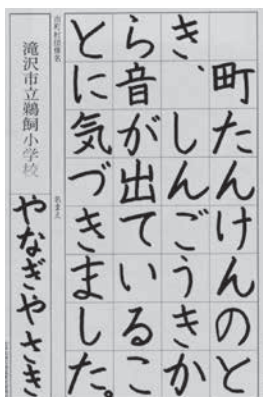 町たんけんのと
き、しんごうきか
ら音が出ているこ
とに気づきました。
市町村団体名
滝沢市立鵜飼小学校
なまえ
やなぎやさき